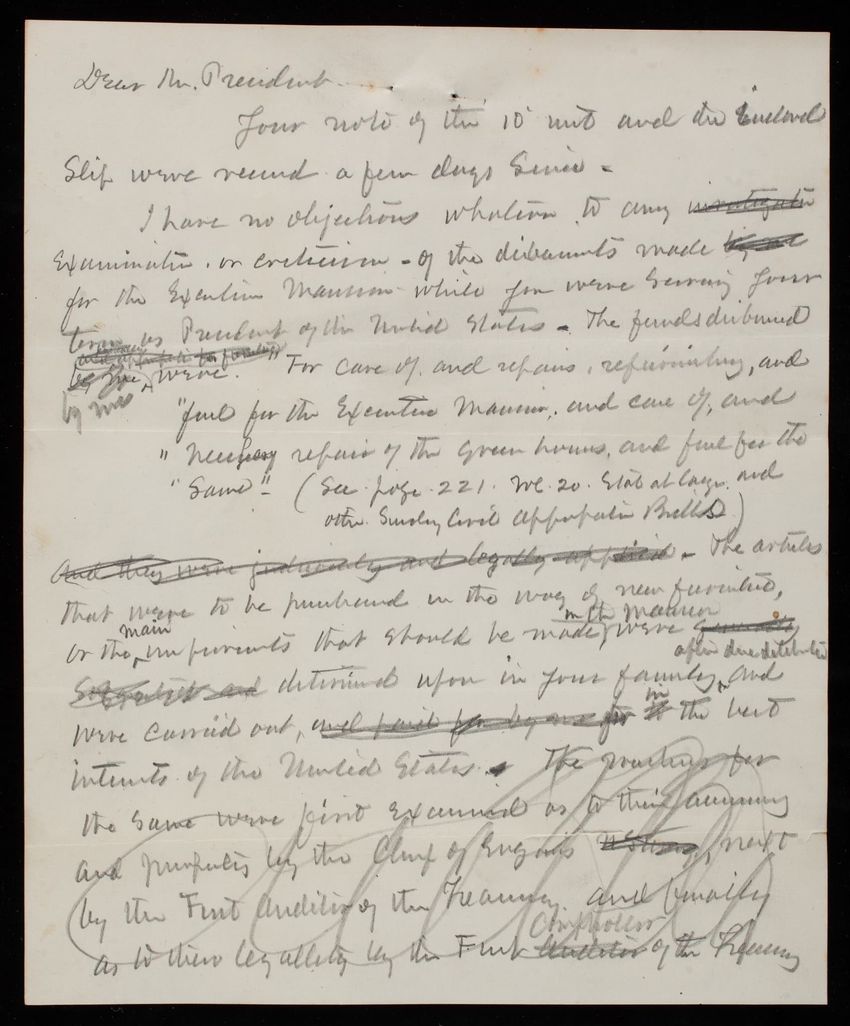 Dear Mr. President
Your note of the 10 inst and the enclosed
Slip were received a few days since -
I have no objections whatever to any investigation
Examination or criticism - of the disbursements made by me
for the Executive Mansion while you were serving your
term as President of the United States - The funds disbursed
by me, were. "For care of, and repairs, refurnishing, and
by me
"fuel for the Executive Mansion, and care of, and
"necessary repair of the green houses, and fuel for the
"Same" - (See page 221. Vol. 20. Stat at large and
other Sundry Civil Appropriation Bills)
And they were judiciously and legally applied - The articles
that were to be purchased in the way of new furniture,
in the Mansion
or the main improvements that should be made, were generally
after due deliberation
determined upon in your family, and
were carried out, and paid for by me for in the best
interests of the United States. The vouchers for
the same were first examined as to their accuracy
and propriety by the Chief of Engineers, next
by the First Auditor of the Treasury and finally
Comptroller
as to their legality by the First Auditor of the Treasury